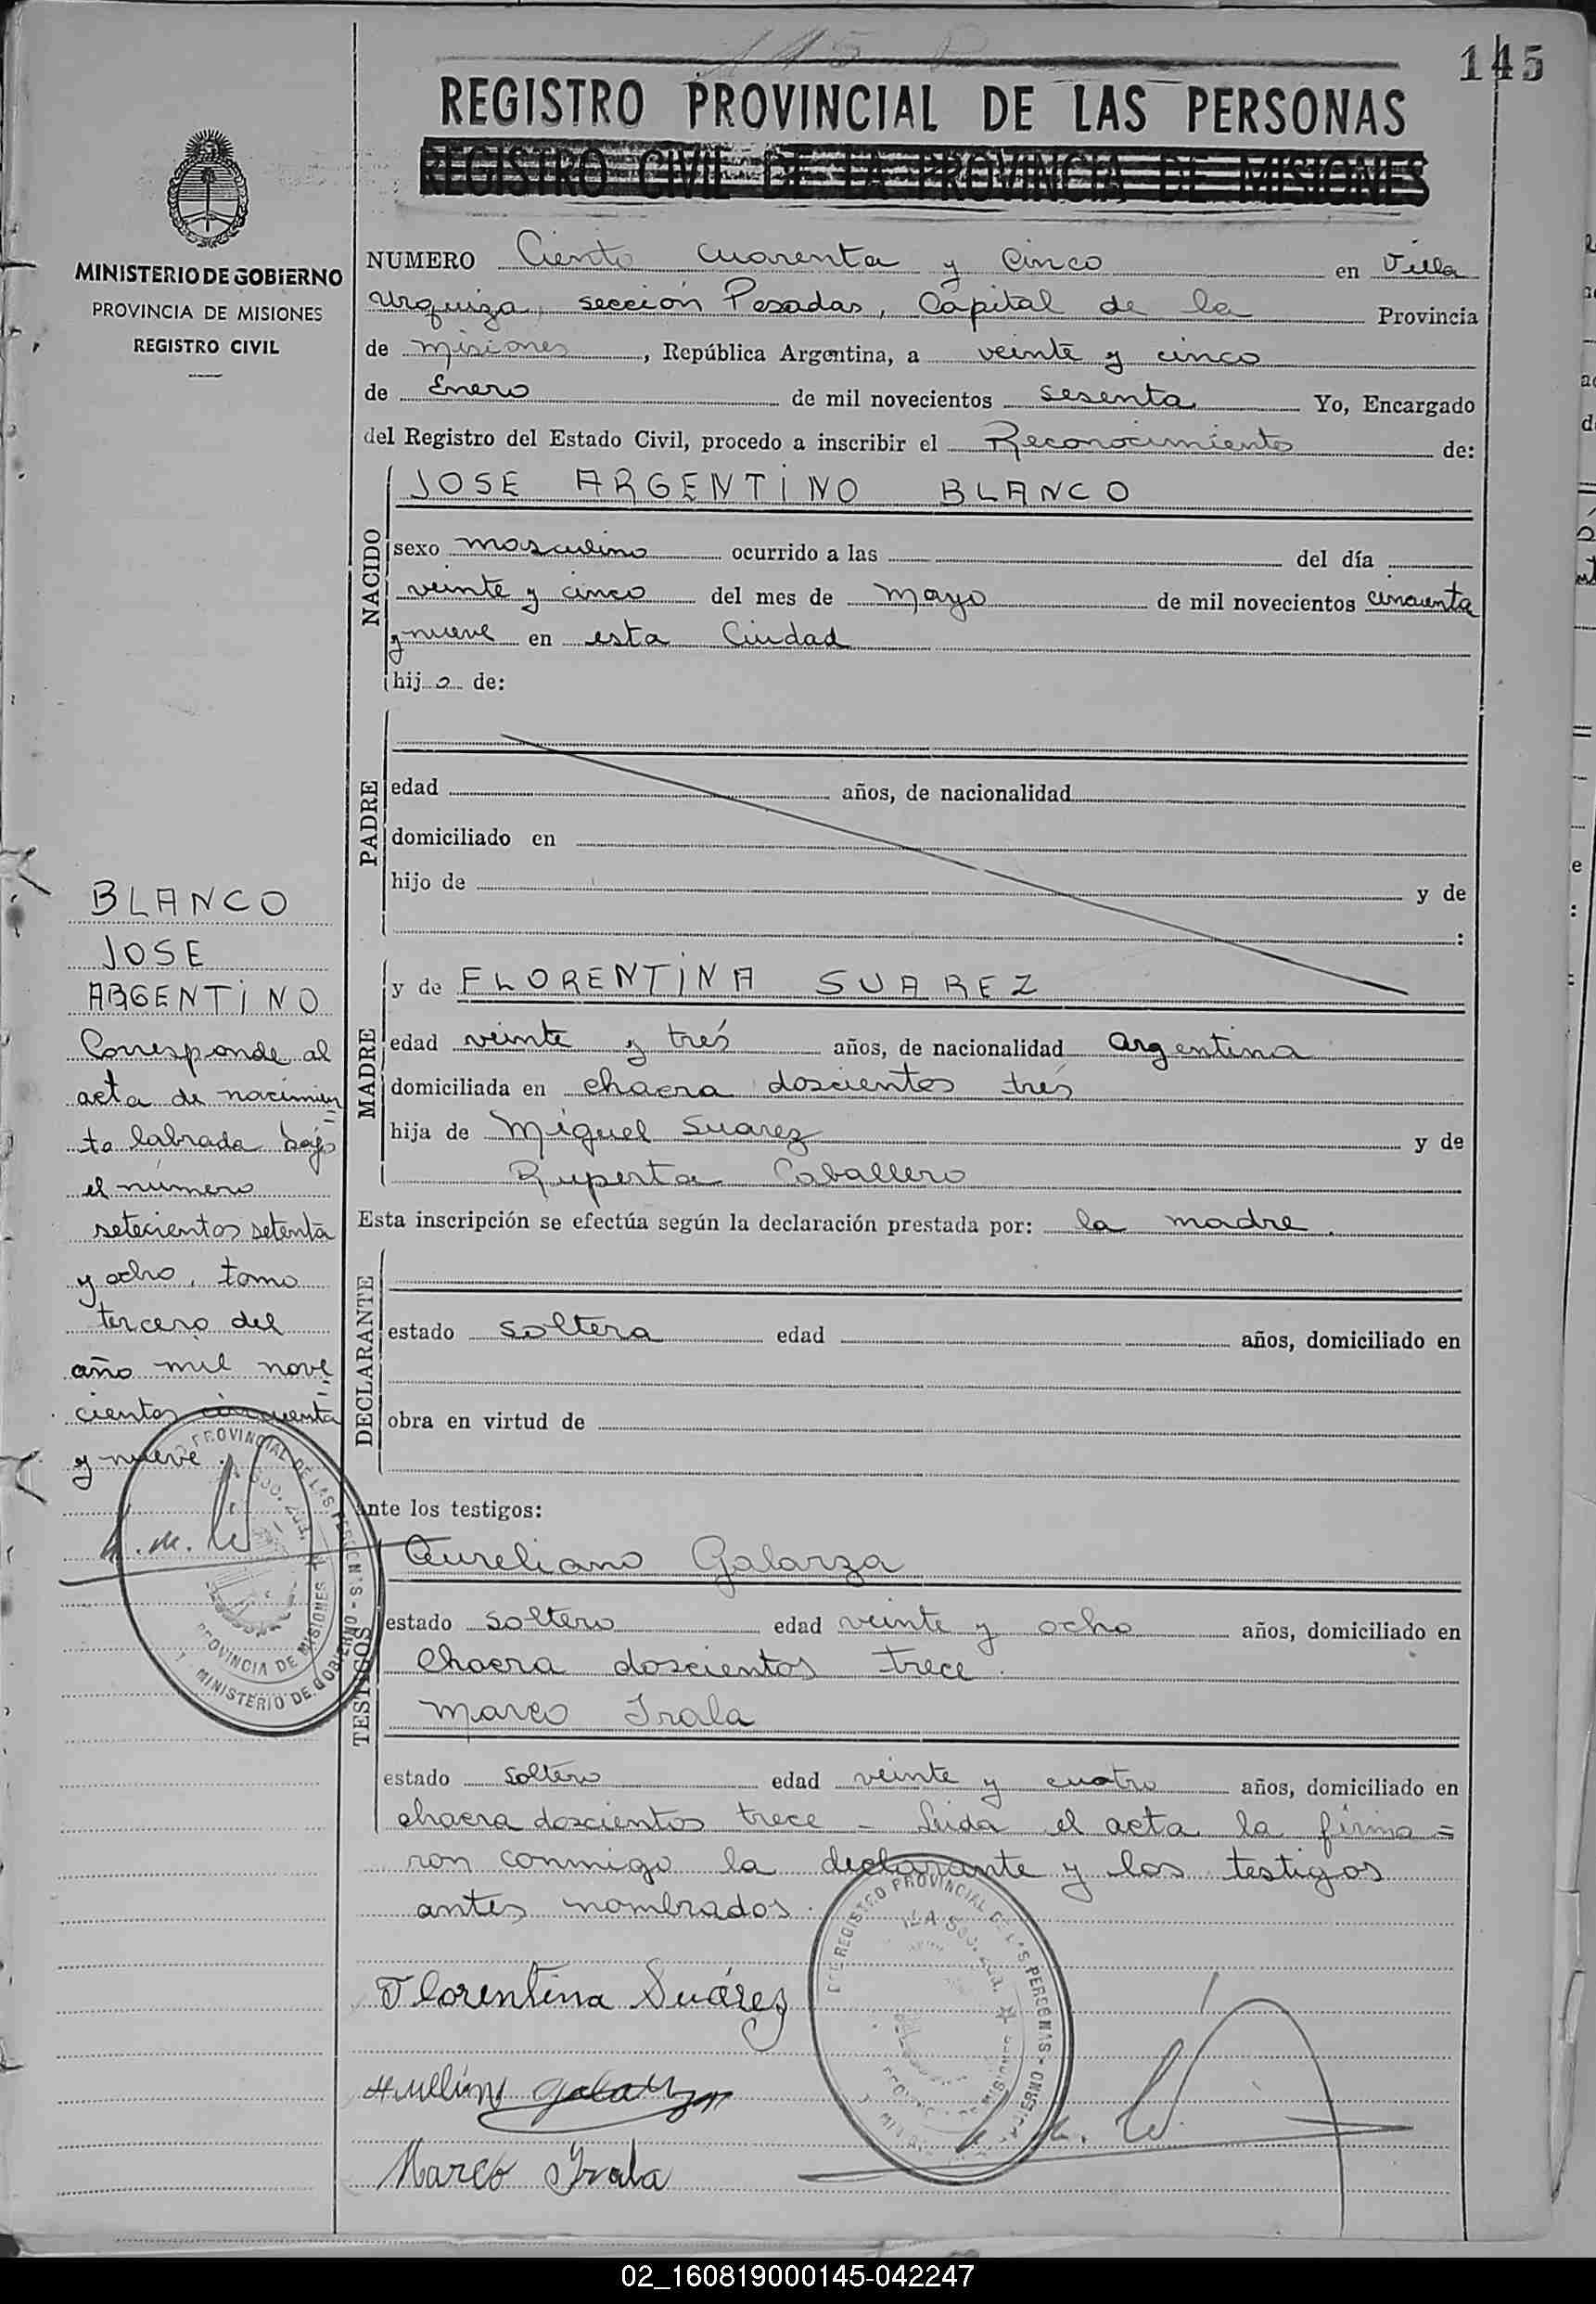 145
REGISTRO PROVINCIAL DE LAS PERSONAS
REGISTRO CIVIL DE LA PROVINCIA DE MISIONES
MINISTERIO DE GOBIERNO
PROVINCIA DE MISIONES
REGISTRO CIVIL
NUMERO Ciento cuarenta y cinco en Villa
Urquiza, sección Posadas, Capital de la Provincia
de Misiones, República Argentina, a veinte y cinco
de Enero de mil novecientos sesenta Yo, Encargado
del Registro del Estado Civil, procedo a inscribir el Reconocimiento de:
NACIDO
JOSE ARGENTINO BLANCO
sexo masculino ocurrido a las del día
veinte y cinco del mes de Mayo de mil novecientos cincuenta
y nueve en esta Ciudad
hijo de:
PADRE
edad años, de nacionalidad
domiciliado en
hijo de y de
:
MADRE
y de FLORENTINA SUAREZ
edad veinte y trés años, de nacionalidad Argentina
domiciliada en chacra doscientos trés
hija de Miguel Suarez y de
Ruperta Caballero
Esta inscripción se efectúa según la declaración prestada por: la madre.
DECLARANTE
estado soltera edad años, domiciliado en
obra en virtud de
ante los testigos:
TESTIGOS
Aureliano Galarza
estado soltero edad veinte y ocho años, domiciliado en
Chacra doscientos trece.
Marco Irala
estado soltero edad veinte y cuatro años, domiciliado en
chacra doscientos trece - Leida el acta la firma=
ron conmigo la declarante y los testigos
antes nombrados.
Florentina Suárez
Galarza
Marco Irala
BLANCO
JOSE
ARGENTINO
Corresponde al
acta de nacimien
to labrada bajo
el número
setecientos setenta
y ocho, tomo
tercero del
año mil nove
cientos cincuenta
y nueve.
PROVINCIAL DE LAS PERSONAS
PROVINCIA DE MISIONES
MINISTERIO DE GOBIERNO
REGISTRO PROVINCIAL DE LAS PERSONAS
02_160819000145-042247